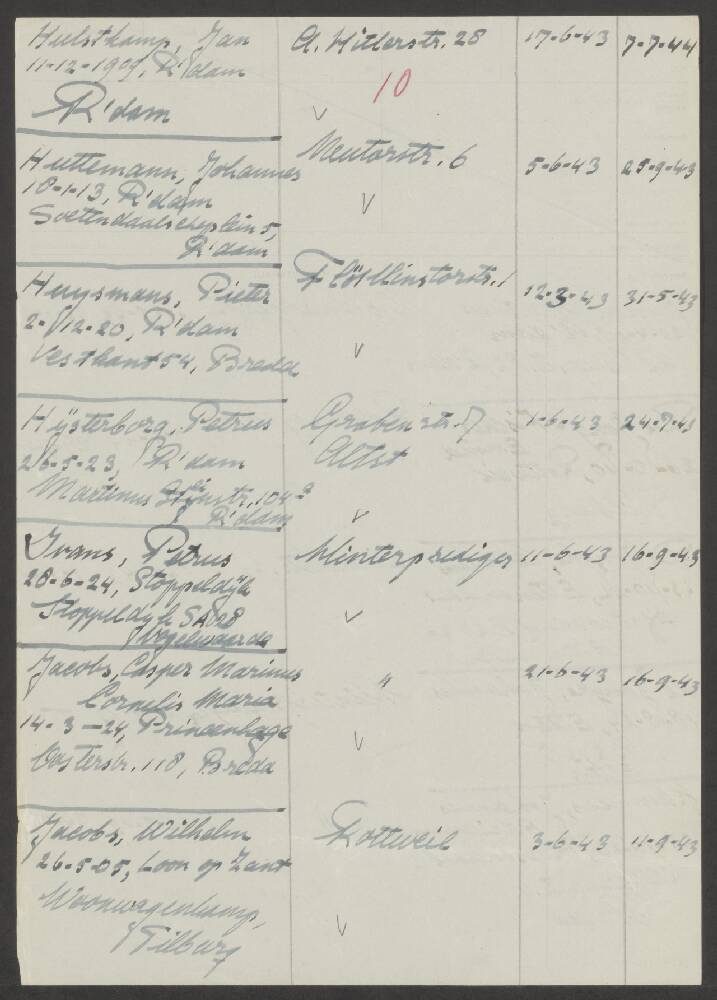 Hulstkamp, Jan A. Hitlerstr. 28 17-6-43 7-7-44
11-12-1909, R'dam
10
R'dam
Huttemann, Johannes Neutorstr. 6 5-6-43 25-9-43
10-1-13, R'dam
Soetendaalscheplein 5,
R'dam
Huysmans, Pieter 12-3-43 31-5-43
2-12-20, R'dam
Vestkant 54, Breda
Hijsterborg, Petrus Grabenstr. 7 1-6-43 24-9-43
26-5-23, R'dam
Altst
Martinus Steijnstr. 104 a
R'dam
Ivans, Petrus Winterprediger 11-6-43 16-9-43
28-6-24, Stoppeldijk
Stoppeldijk
Vogelwaarde
Jacobs, Casper Marinus " 21-6-43 16-9-43
Cornelis Maria
14-3-24, Princenhage
Oosterstr. 118, Breda
Jacobs, Wilhelm Rottweil 3-6-43 11-9-43
26-5-05, Loon op Zant
Woonwagenkamp,
Tilburg